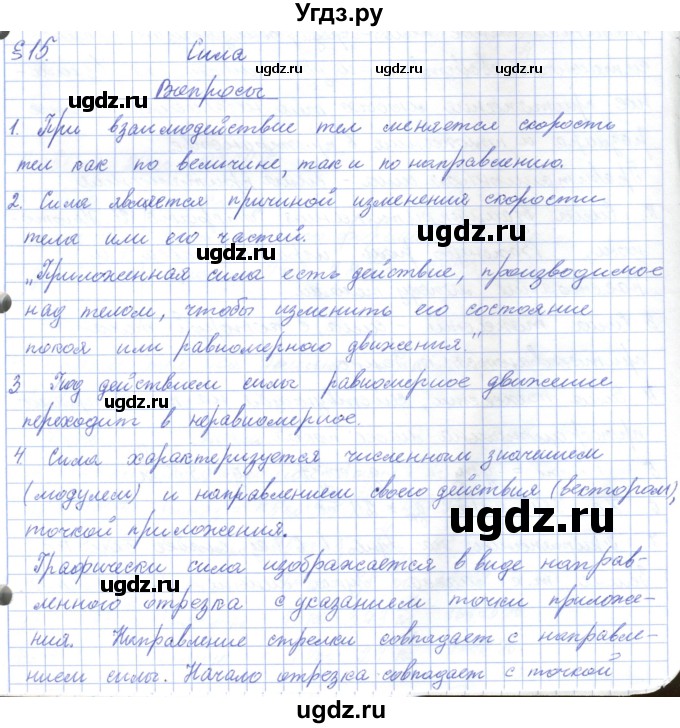 Угдз.ру
§15. Сила
ugdz.ru ugdz.ru ugdz.ru
Вопросы
ugdz.ru
1. При взаимодействие тел меняется скорость
тел как по величине, так и по направлению.
2. Сила является причиной изменения скорости
ugdz.ru
тела или его частей.
ugdz.ru
„Приложенная сила есть действие, производимое
над телом, чтобы изменить его состояние
покоя или равномерного движения"
ugdz.ru
3 Под действием силы равномерное движение
ugdz.ru
переходит в неравномерное.
4. Сила характеризуется численным значением
(модулем) и направлением своего действия (вектором),
ugdz.ru
точкой приложения.
Графически сила изображается в виде направ-
ugdz.ru
ленного отрезка с указанием точки приложе-
ния. Направление стрелки совпадает с направле-
ugdz.ru
нием силы. Начало отрезка совпадает с точкой
ugdz.ru